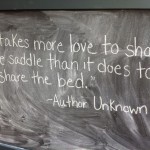 takes more love to sha
e saddle than it does to
share the bed."
-Author Unknown